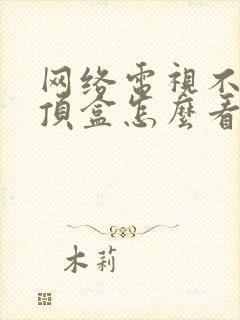 网络電視不
頂盒怎麼看
木莉